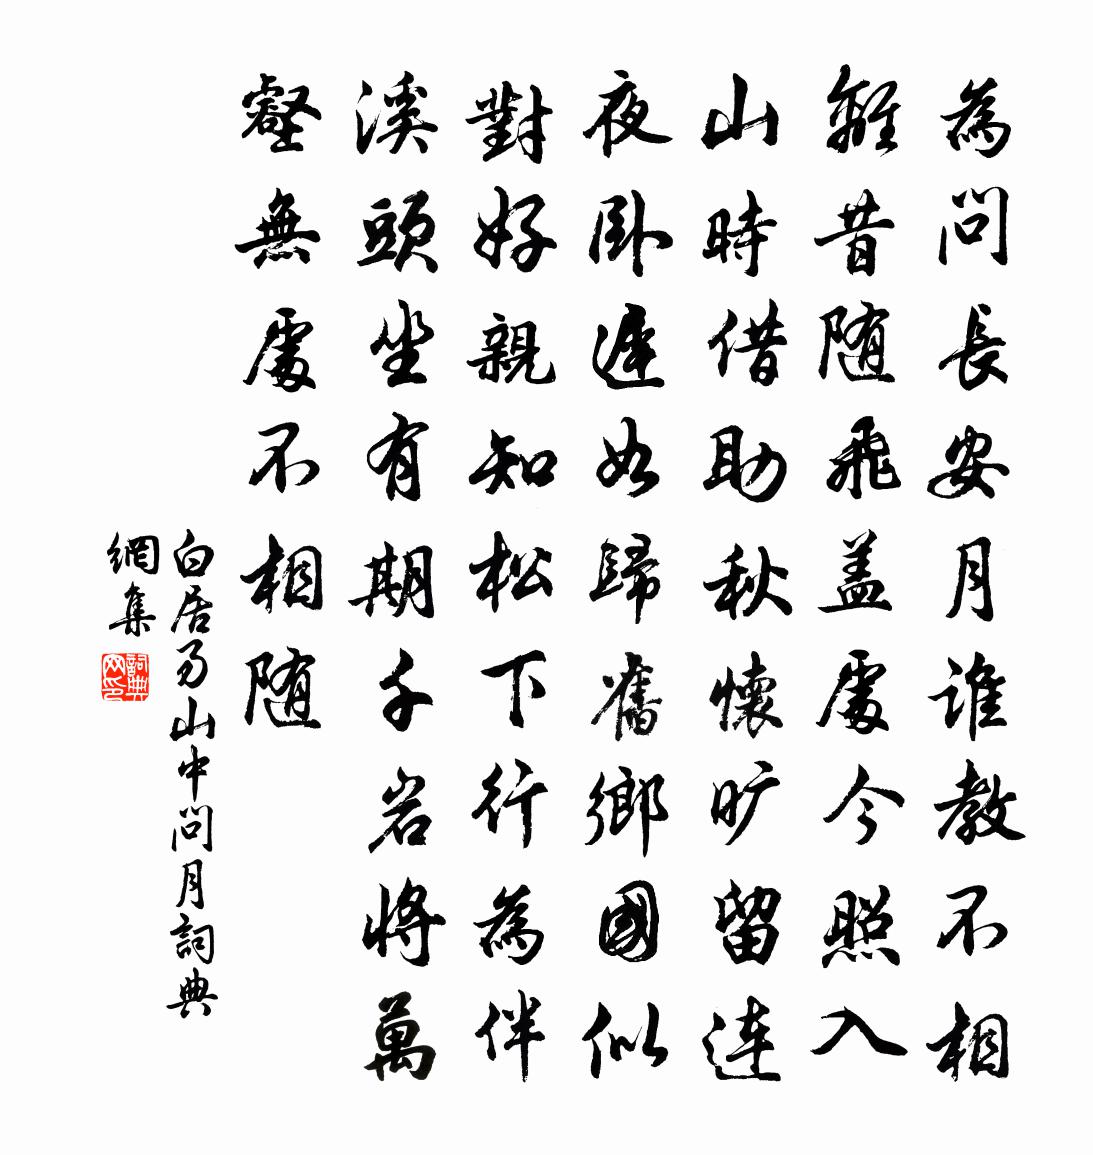 為問長安月誰教不相
離昔随飛盖處今照入
山時借助秋懷旷留連
夜卧遲如歸舊鄉國似
對好親知松下行為伴
溪頭坐有期千岩將萬
壑無處不相随
白居易山中問月詞典
網集
詞典
网印